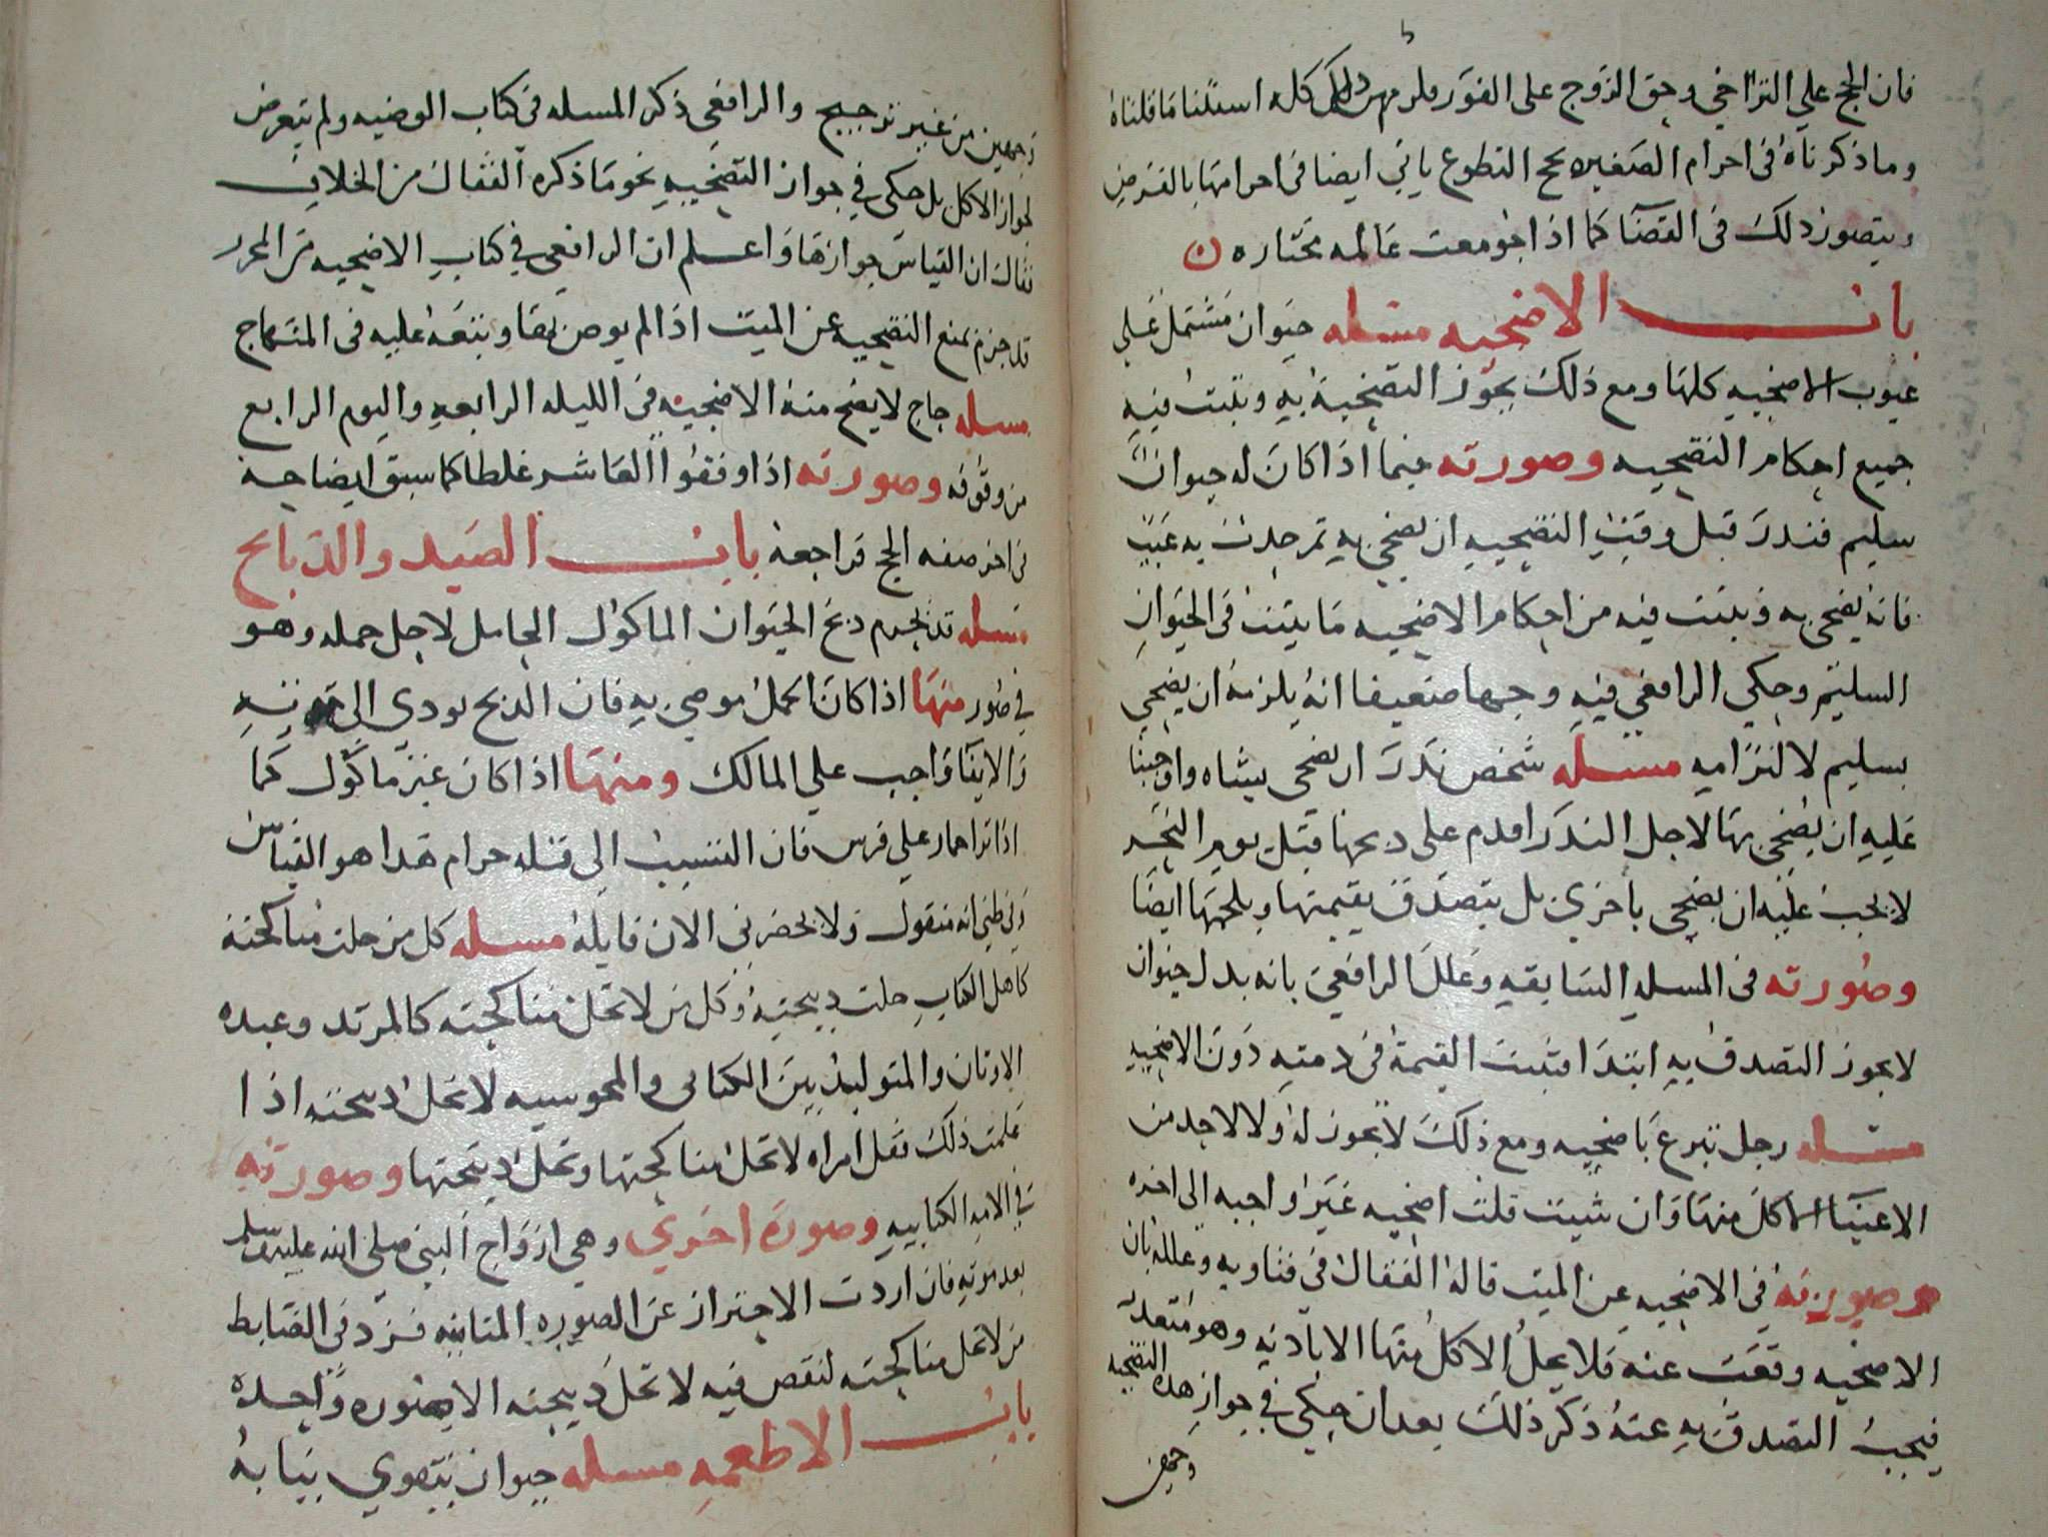 فان الحج على التراخي وحق الزوج على الفور فلزم من ذلك كله استثنا ما قلناه
وما ذكرناه في احرام الصغيره بحج التطوع ياتي ايضا في احرامها بالفرض
ويتصور ذلك في القضا كما اذا جومعت عالمه مختاره ن
باب الاضحيه مسله حيوان مشتمل على
عيوب الاضحيه كلها ومع ذلك يجوز التضحية به ويثبت فيه
جميع احكام التضحيه وصورته فيما اذا كان له حيوان
سليم فنذر قبل وقت التضحيه ان يضحي به ثم حدث به عيب
فانه يضحى به ويثبت فيه من احكام الاضحيه ما يثبت في الحيوان
السليم وحكي الرافعي فيه وجها ضعيفا انه يلزمه ان يضحي
بسليم لالتزامه مسله شخص نذر ان يضحى بشاه واوجبنا
عليه ان يضحي بها لاجل النذر اقدم على ذبحها قبل يوم النحر
لا يجب عليه ان يضحى باخري بل يتصدق بقيمتها وبلحمها ايضا
وصورته في المسله السابقه وعلل الرافعي بانه بدل حيوان
لا يجوز التصدق به ابتدا فثبت القيمة في ذمته دون الاضحيه
مسله رجل تبرع باضحيه ومع ذلك لا يجوز له ولا لاحد من
الاغنيا الاكل منها وان شيت قلت اضحيه غير واجبه الى اخره
وصورته في الاضحيه عن الميت قاله القفال في فتاويه وعلله بان
الاضحيه وقعت عنه فلا يحل الاكل منها الا باذنه وهو متعذر
فيجب التصدق به عنه ذكر ذلك بعد ان حكي في جواز هذه التضحيه
وجهين
وجهين من غير ترجيح والرافعي ذكر المسله في كتاب الوصيه ولم يتعرض
لجواز الاكل بل حكى في جواز التضحيه نحو ما ذكره القفال من الخلاف
فقال ان القياس جوازها واعلم ان الرافعي في كتاب الاضحيه من المحرر
قد جزم بمنع التضحيه عن الميت اذا لم يوص بها وتبعه عليه في المنهاج
مسله حاج لا يصح منه الاضحيه في الليله الرابعه واليوم الرابع
من وقوفه وصورته اذا وقفوا العاشر غلطا كما سبق ايضاحه
في اخر صفه الحج فراجعه باب الصيد والذبايح
مسله قد يحرم ذبح الحيوان الماكول الحامل لاجل حمله وهو
في صور منها اذا كان الحمل موصي به فان الذبح يودي الى
والايفا واجب علي المالك ومنها اذا كان غير ماكول كما
اذا نزا حمار على فرس فان التسبب الى قتله حرام هذا هو القياس
وفي ظني انه منقول ولا يحضرني الان قايله مسله كل من حلت مناكحته
كاهل الكتاب حلت ذبيحته وكل من لا تحل مناكحته كالمرتد وعبده
الاوثان والمتولد بين الكتابى والمجوسيه لا تحل ذبيحته اذا
علمت ذلك فقل امراه لا تحل مناكحتها وتحل ذبيحتها وصورته
في الامه الكتابيه وصوره اخري وهي ازواج النبي صلى الله عليه وسلم
بعد موته فان اردت الاحتراز عن الصوره الثانيه فزد في الضابط
من لا تحل مناكحته لنقص فيه لا تحل ذبيحته الا صوره واحده
باب الاطعمه مسله حيوان يتقوي بنابه